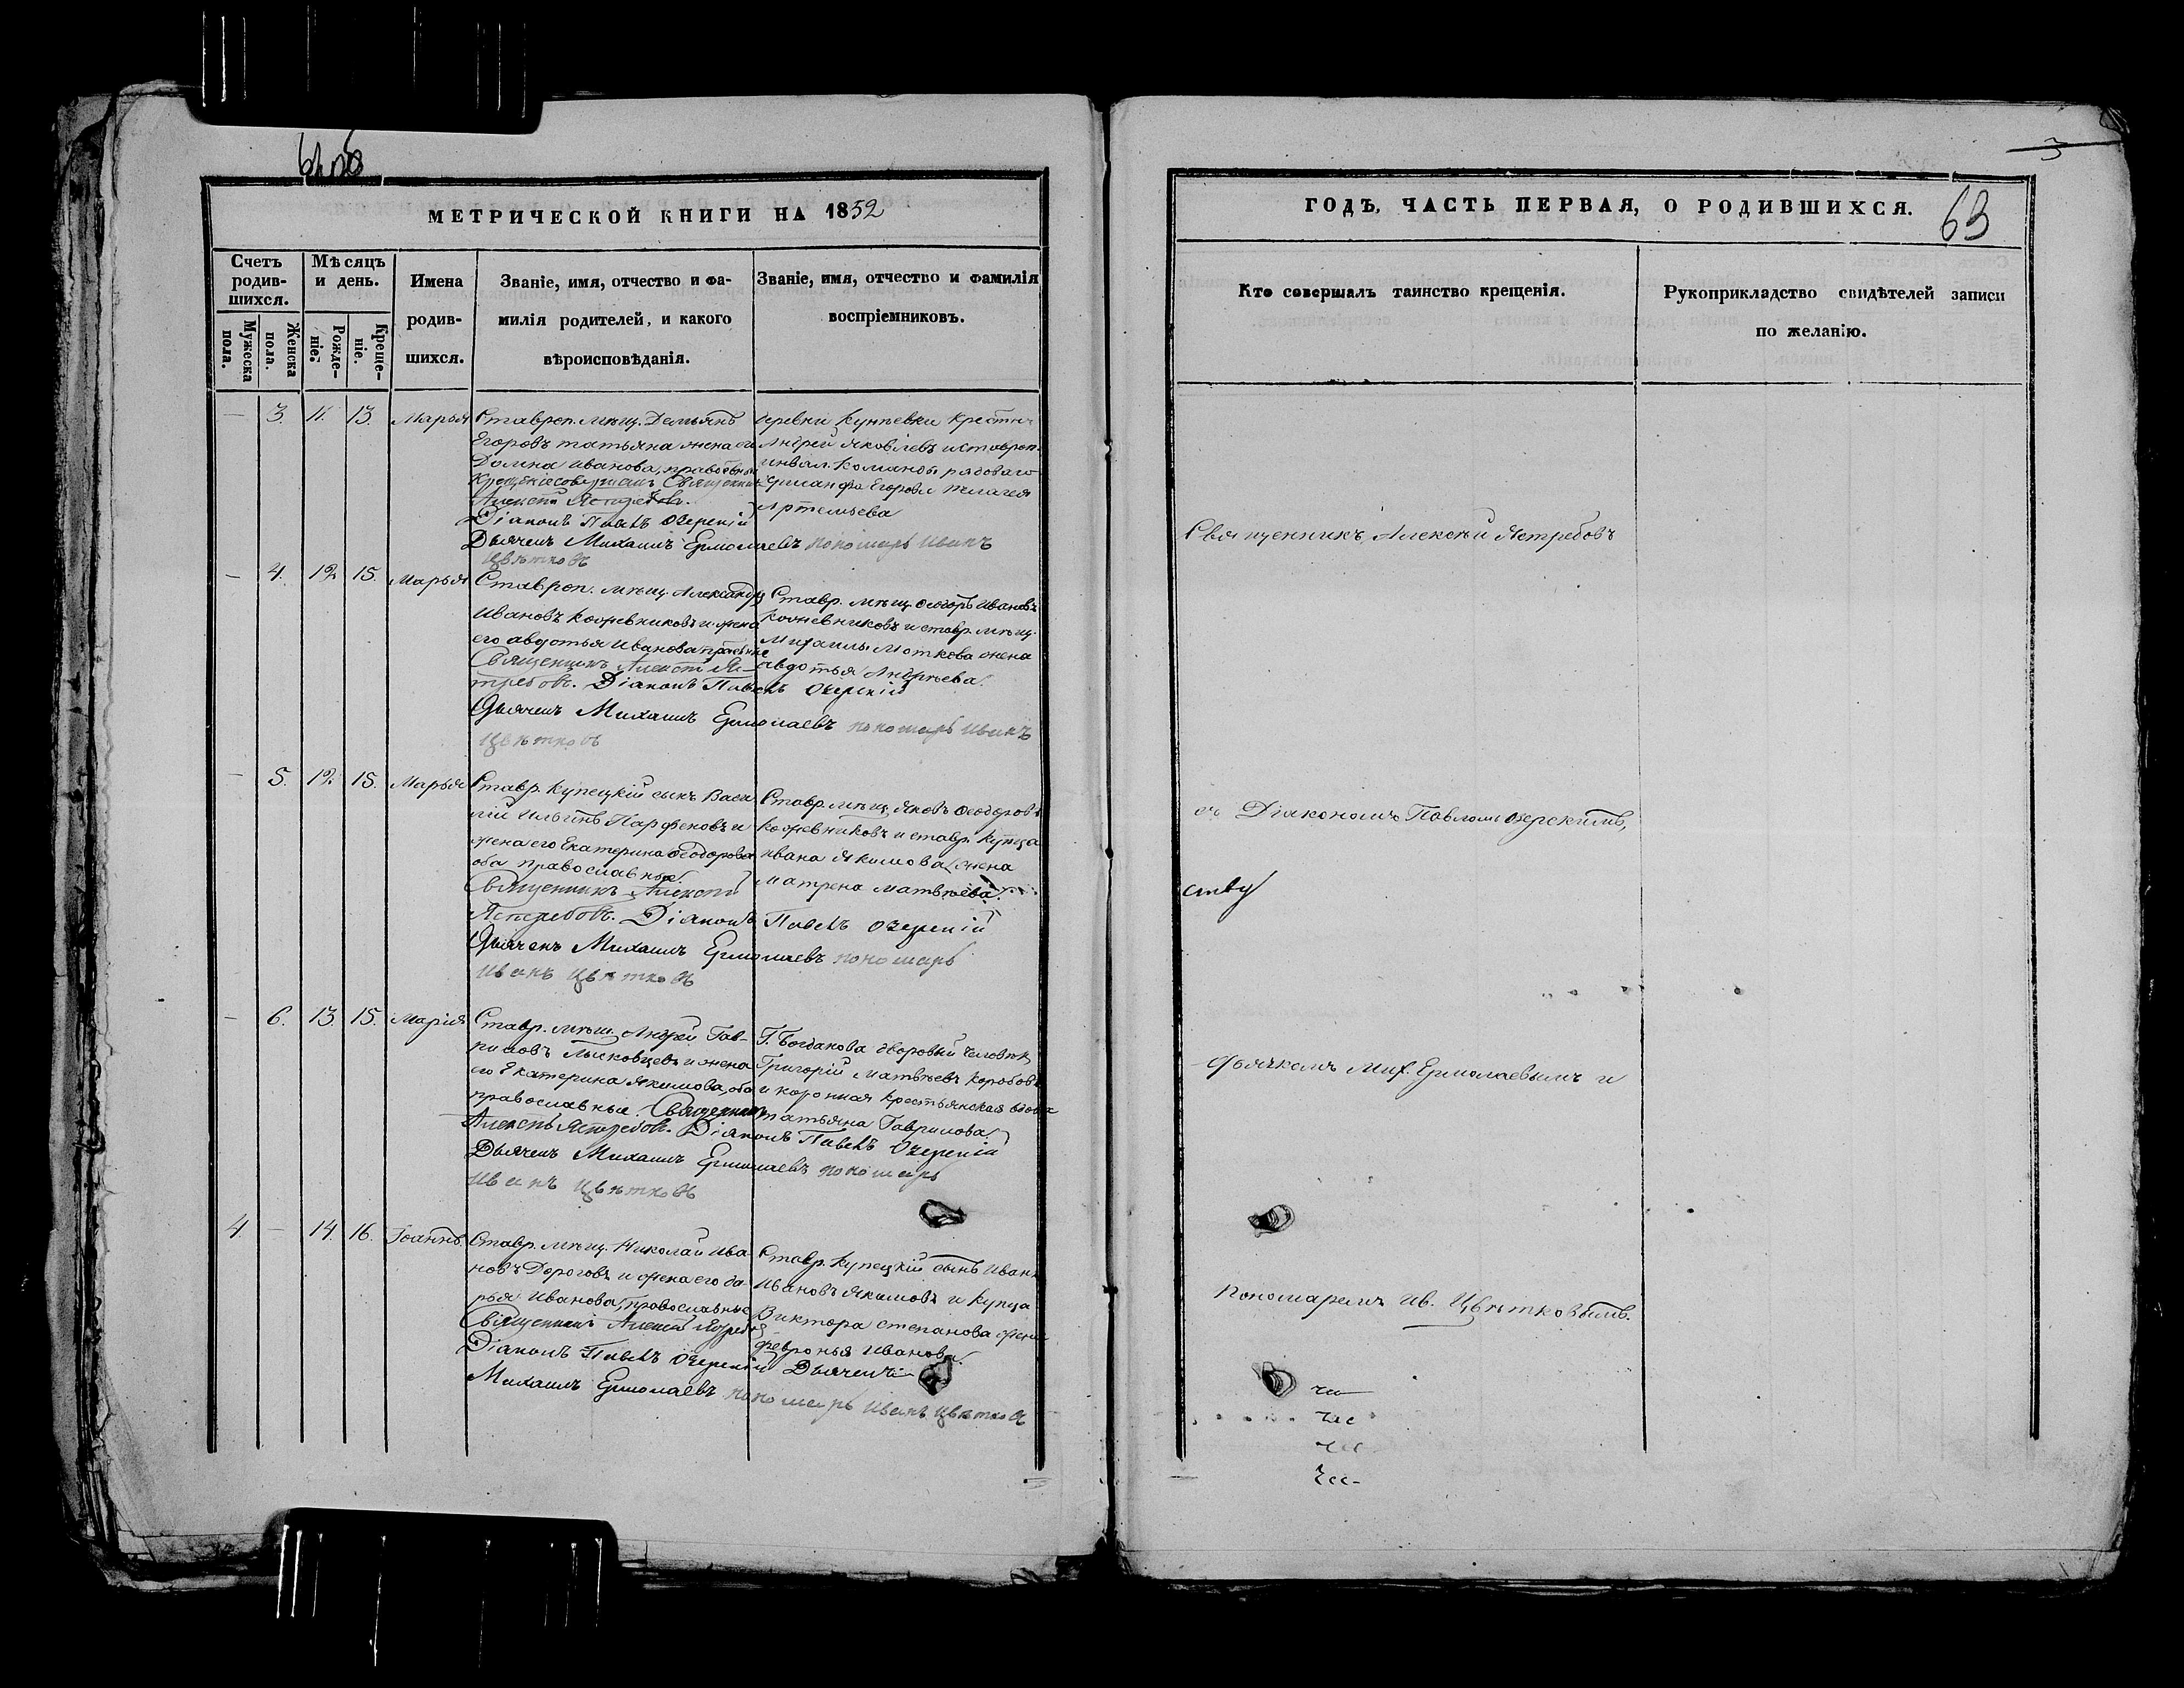 МЕТРИЧЕСКОЙ КНИГИ НА 1852
Счетъ родив-шихся.
Мѣсяцъ и день.
Имена родив-шихся.
Званіе, имя, отчество и фа-
милія родителей, и какого
вѣроисповѣданія.
Званіе, имя, отчество и фамилія
воспріемниковъ.
Мужеска пола.
Женска пола.
Рожде-ніе.
Креще-ніе.
— 3. 11. 13. Марья
Ставроп. мѣщ. Демьянъ
Егоровъ татьяна жена его
Домна Иванова, православные
Крещеніе совершалъ Священникъ
Алексѣй Ястребовъ.
Діаконъ Павелъ Озерскій
Дьячекъ Михаилъ Ермолаевъ пономарь Иванъ
Цвѣтковъ
деревни крестн.
Андрей Яковлевъ и ставроп.
инвал. команды рядоваго
Егорова
Артемьева
— 4. 12 15. Марья
Ставроп. мѣщ. Александръ
Ивановъ Кожевниковъ и жена
его авдотья Иванова правосл.
Священникъ Алексѣй Яс-
требовъ. Діаконъ Павелъ Озерскій
Дьячекъ Михаилъ Ермолаевъ пономарь Иванъ
Цвѣтковъ
Ставр. мѣщ. Ѳеодоръ Ивановъ
Кожевниковъ и ставр. мѣщ.
Михаилы Моткова жена
авдотья Андреева.
— 5. 12. 15. Марья
Ставр. купецкій сынъ Васи-
лій Ильинъ Парфеновъ и
жена его Екатерина Ѳеодорова
оба православные.
Священникъ Алексѣй
Ястребовъ. Діаконъ Павелъ Озерскій
Дьячекъ Михаилъ Ермолаевъ пономарь
Иванъ Цвѣтковъ
Ставр. мѣщ. Яковъ Ѳеодоровъ
Кожевниковъ и ставр. купца
Ивана Якимова жена
Матрена Матвѣева.
— 6. 13. 15. Марія
Ставр. мѣщ. Андрей Гав-
риловъ Лысковцевъ и жена
его Екатерина Якимова, оба
православные. Священникъ
Алексѣй Ястребовъ. Діаконъ Павелъ Озерскій
Дьячекъ Михаилъ Ермолаевъ пономарь
Иванъ Цвѣтковъ
Г. Богданова дворовый человѣкъ
Григорій Матвѣевъ Коробовъ
и крестьянская вдова
татьяна Гаврилова.
4. — 14. 16. Іоаннъ
Ставр. мѣщ. Николай Ива-
новъ Дороговъ и жена его да-
рья Иванова, православные
Священникъ Алексѣй Ястребовъ
Діаконъ Павелъ Озерскій Дьячекъ
Михаилъ Ермолаевъ пономарь Иванъ Цвѣтковъ
Ставр. купецкій сынъ Иванъ
Ивановъ Якимовъ и купца
Виктора степанова жена
Февронья Иванова.
3
ГОДЪ, ЧАСТЬ ПЕРВАЯ, О РОДИВШИХСЯ.
63
Кто совершалъ таинство крещенія.
Рукоприкладство свидѣтелей записи
по желанію.
Священникъ Алексѣй Ястребовъ
съ Діакономъ Павломъ Озерскимъ,
Дьячкомъ Мих. Ермолаевымъ и
Пономаремъ Ив. Цвѣтковымъ.